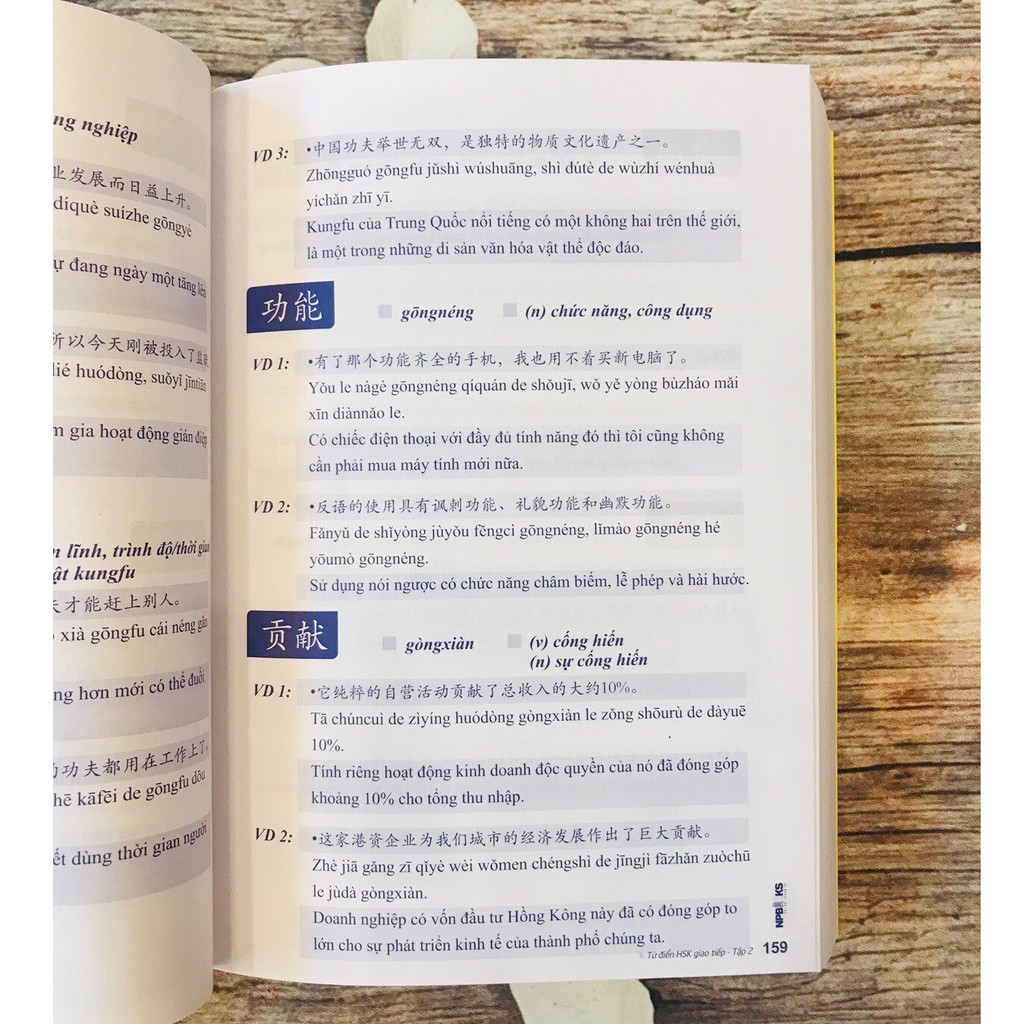 ng nghiệp
业发展而日益上升。
díquè suízhe gōngyè
ự đang ngày một tăng lên
所以今天刚被投入了监狱
lié huódòng, suǒyǐ jīntiān
m gia hoạt động gián điệp
n lĩnh, trình độ/thời gian
ật kungfu
夫才能赶上别人。
xià gōngfu cái néng gǎn
ng hơn mới có thể đuổi
功夫都用在工作上了。
hē kāfēi de gōngfu dōu
ết dùng thời gian người
VD 3: •中国功夫举世无双，是独特的物质文化遗产之一。
Zhōngguó gōngfu jǔshì wúshuāng, shì dútè de wùzhí wénhuà
yíchǎn zhī yī.
Kungfu của Trung Quốc nổi tiếng có một không hai trên thế giới,
là một trong những di sản văn hóa vật thể độc đáo.
功能 gōngnéng (n) chức năng, công dụng
VD 1: •有了那个功能齐全的手机，我也用不着买新电脑了。
Yǒu le nàgè gōngnéng qíquán de shǒujī, wǒ yě yòng bùzháo mǎi
xīn diànnǎo le.
Có chiếc điện thoại với đầy đủ tính năng đó thì tôi cũng không
cần phải mua máy tính mới nữa.
VD 2: •反语的使用具有讽刺功能、礼貌功能和幽默功能。
Fǎnyǔ de shǐyòng jùyǒu fěngcì gōngnéng, lǐmào gōngnéng hé
yōumò gōngnéng.
Sử dụng nói ngược có chức năng châm biếm, lễ phép và hài hước.
贡献 gòngxiàn (v) cống hiến
(n) sự cống hiến
VD 1: •它纯粹的自营活动贡献了总收入的大约10%。
Tā chúncuì de zìyíng huódòng gòngxiàn le zǒng shōurù de dàyuē
10%.
Tính riêng hoạt động kinh doanh độc quyền của nó đã đóng góp
khoảng 10% cho tổng thu nhập.
VD 2: •这家港资企业为我们城市的经济发展作出了巨大贡献。
Zhè jiā gǎng zī qǐyè wèi wǒmen chéngshì de jīngjì fāzhǎn zuòchū
le jùdà gòngxiàn.
Doanh nghiệp có vốn đầu tư Hồng Kông này đã có đóng góp to
lớn cho sự phát triển kinh tế của thành phố chúng ta.
NPBOOKS
Từ điển HSK giao tiếp - Tập 2 159